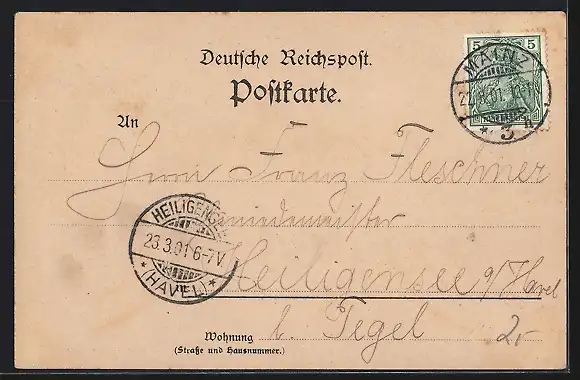 Deutsche Reichspost.
Postkarte.
5 5
MAINZ
22.3.01.
* 3 *
An
Herrn Franz Fleschner
Schmiedemeister
HEILIGENSEE
23.3.01 6-7V.
* (HAVEL) *
Heiligensee a/Havel
b. Tegel
2,-
Wohnung
(Straße und Hausnummer.)